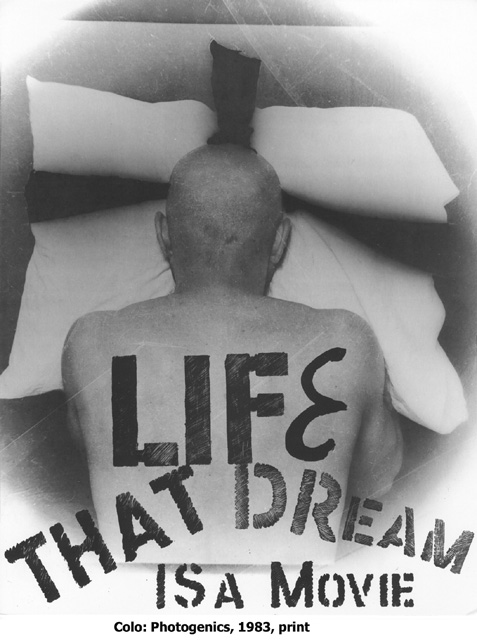 LIFE
THAT DREAM
IS A MOVIE
Colo: Photogenics, 1983, print